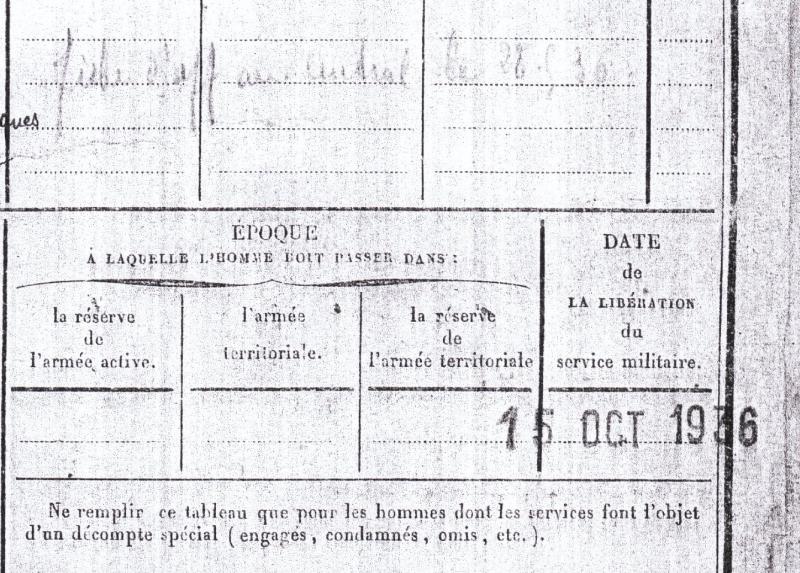 au central
ques
ÉPOQUE
À LAQUELLE L'HOMME DOIT PASSER DANS :
la réserve
de
l'armée active.
l'armée
territoriale.
la réserve
de
l'armée territoriale
DATE
de
LA LIBÉRATION
du
service militaire.
15 OCT 1936
Ne remplir ce tableau que pour les hommes dont les services font l'objet
d'un décompte spécial ( engagés , condamnés , omis , etc. ).